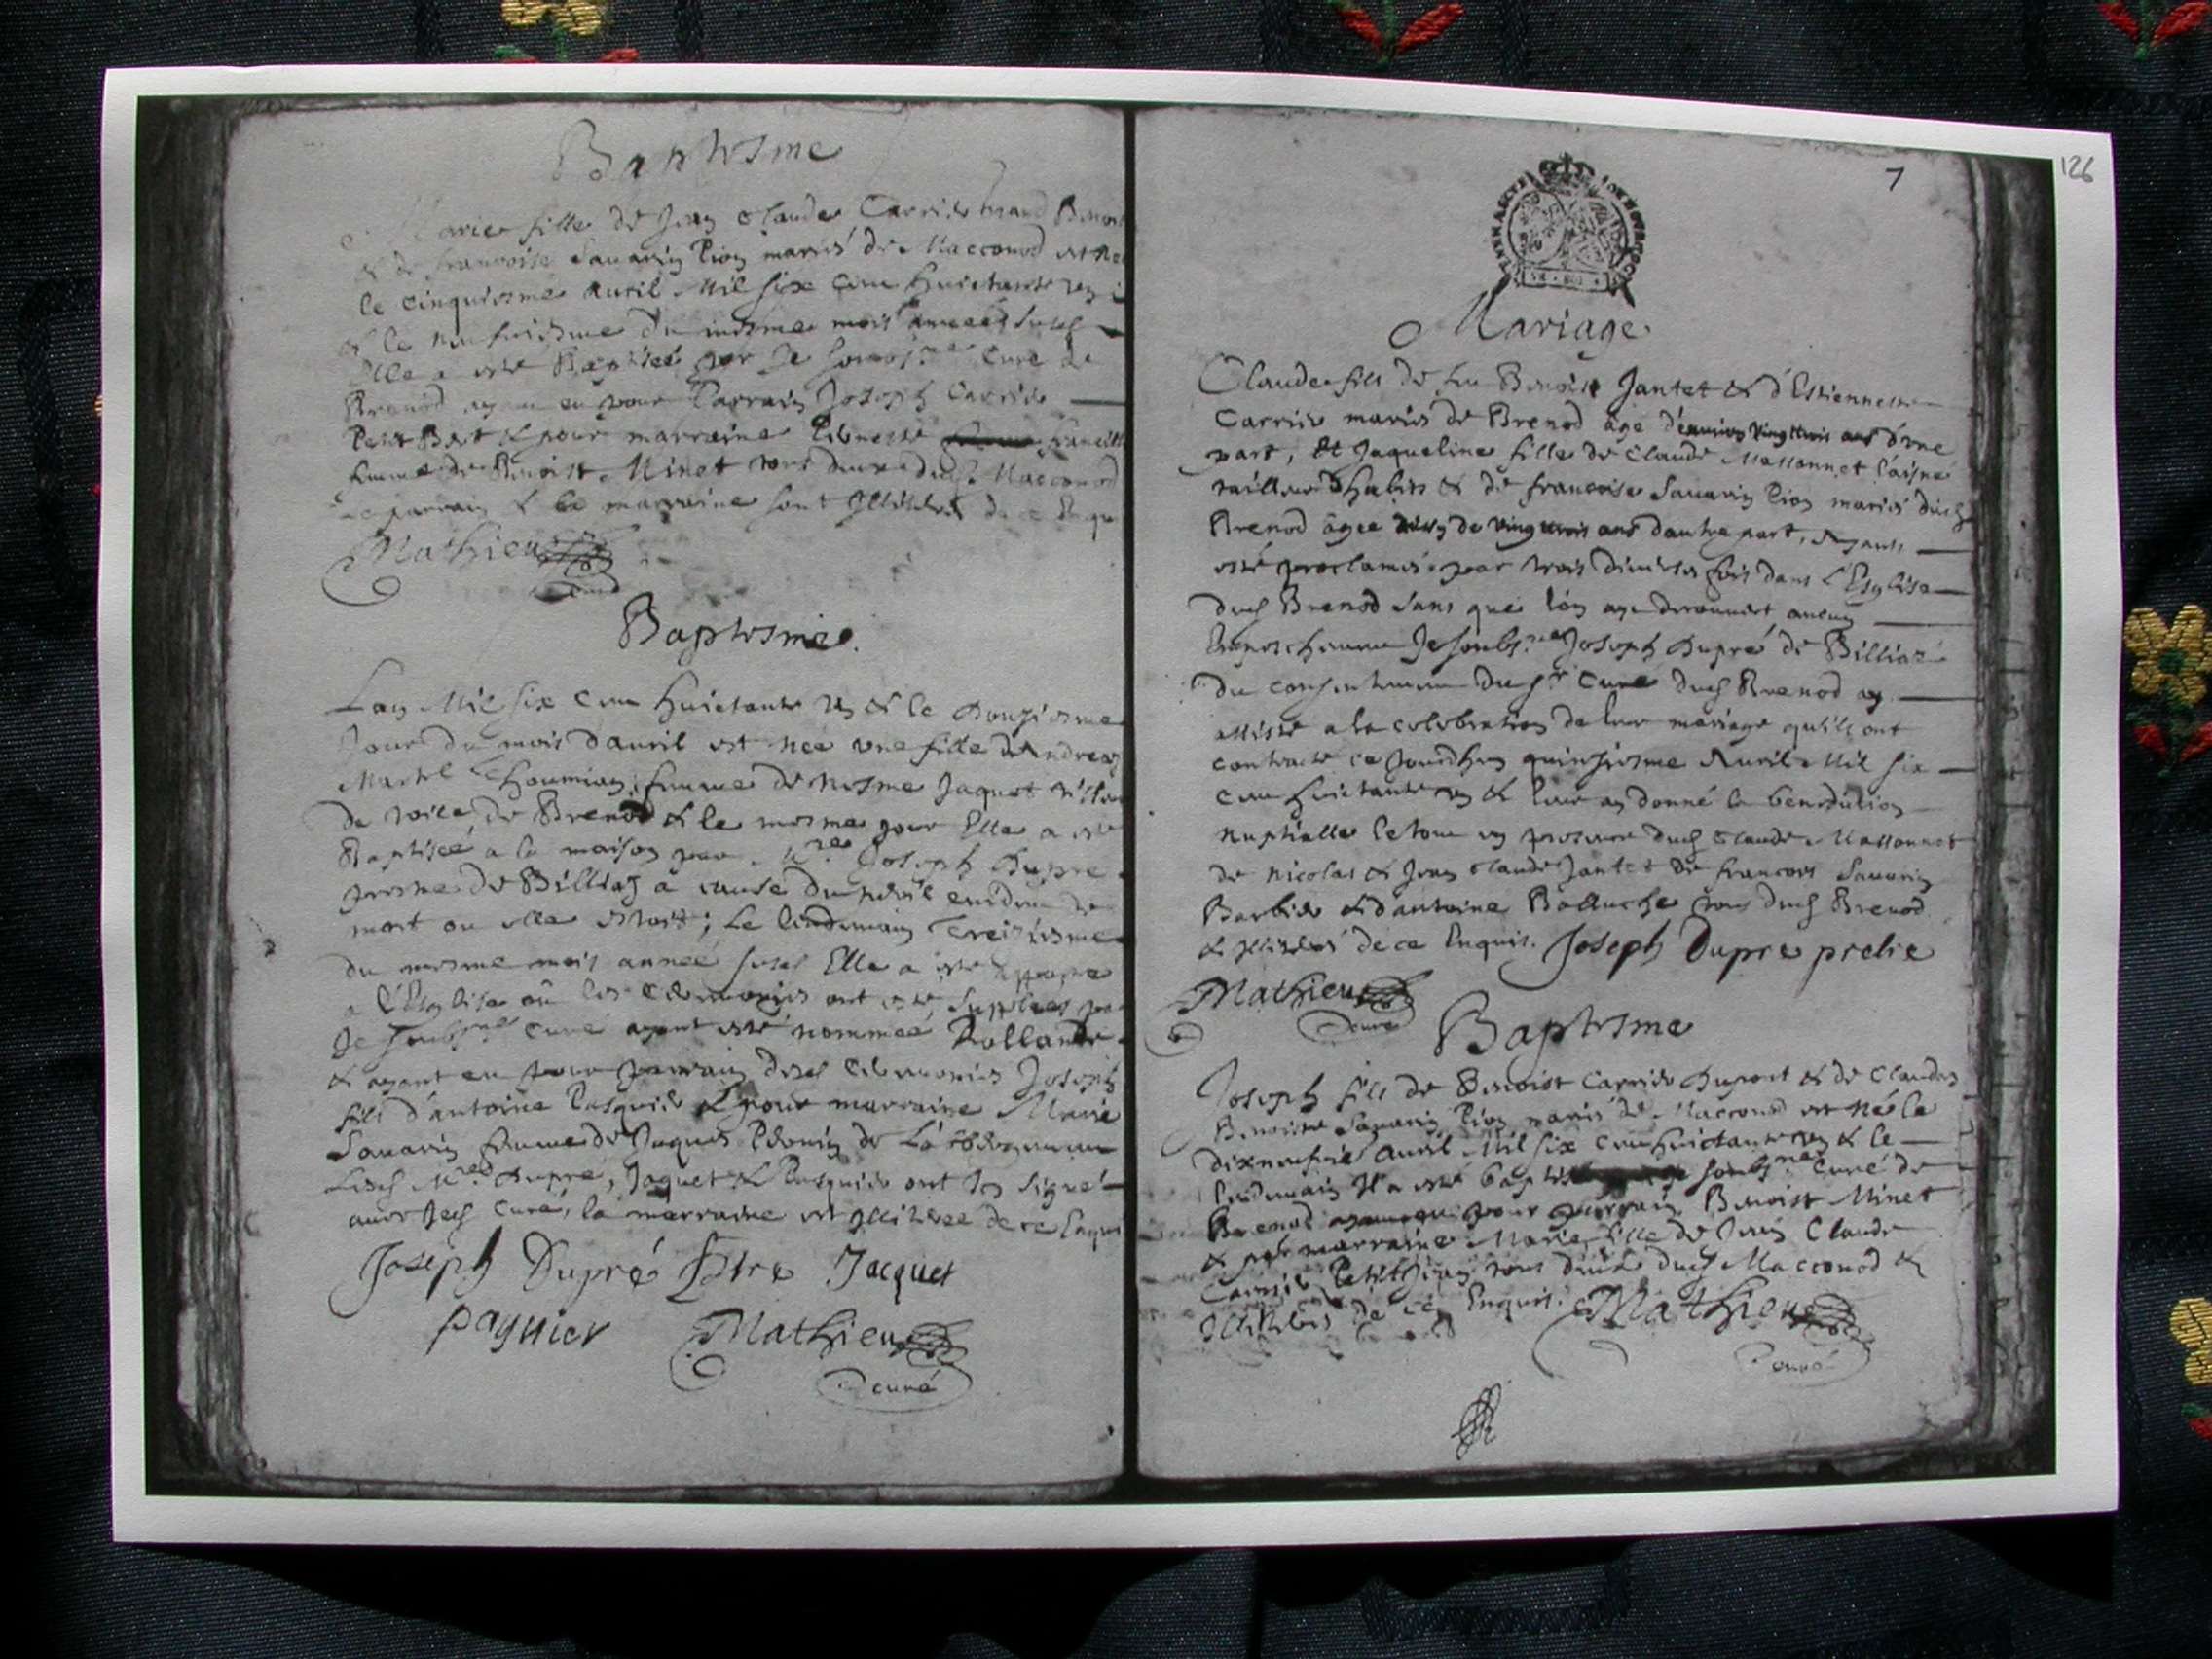 Baptesme
Marie fille de Jean Claude Carrier Benoist
& de francoise Sauarin Pion mariés de Macconod est née
le cinquiesme Auril Mil six cens huictante un
& le neufuiesme du mesme mois année susd
Elle a esté Baptisée par Je soubs.né Curé de
Brenod ayant eu pour Parrain Joseph Carrier
Petit & pour marraine Pernette
femme de Benoist Minet tous deux dud Macconod
Le parrain & la marraine sont Illiterés de ce Enquis
Mathieu
curé
Baptesme.
Lan Mil six cens huictante un & le douziesme
Jour du mois dauril est née une fille d'Andreaz
Martel femme de Jaquet
de Brenod & le mesme jour Elle a esté
Baptisée a la maison par M.re Joseph Dupré
de Billiaz a cause du peril euident de
mort ou elle estoit; Le lendemain Treiziesme
du mesme mois année susd Elle a esté apportée
a l'Esglise où les Ceremonies ont esté supplées par
Je soubs.né curé ayant esté nommée Rollande
& ayant eu pour parrain desd Ceremonies Joseph
fils d'antoine Pasquier & pour marraine Marie
Sauarin femme de Jaques de
Lesd M.re Dupré, Jaquet & Pasquier ont signé
auec Jed Curé, la marraine est Illiterée de ce Enquis
Joseph Dupré Ptre Jacquet
paquier Mathieu
curé
7
126
Mariage
Claude fils de feu Benoist Jantet & d'Estiennette
Carrier mariés de Brenod âgé d'enuiron Vingt trois ans d'vne
part, Et Jaqueline fille de Claude Massonnet l'aisné
tailleur d'habits & de francoise Sauarin Pion mariés dud
Brenod âgée de Vingt trois ans dautre part, Ayants
esté proclamés par trois diuerses fois dans l'Esglise
dud Brenod sans que lon aye descouuert aucun
Empeschement Je soubs.né Joseph Dupré de Billiaz
du consentement du s.r Curé dud Brenod ay
assisté a la celebration de leur mariage qu'ils ont
contracté ce Jourdhuy quinziesme Auril Mil six
cens huictante un & leur ay donné la benediction
nuptialle le tout en presence dud Claude Massonnet
de Nicolas & Jean Claude Jantet de francois Sauarin
Barbier & d'antoine Balluche tous dud Brenod
& Illiterés de ce Enquis. Joseph Dupre prestre
Mathieu
curé
Baptesme
Joseph fils de Benoist Carrier Dupont & de Claudaz
Benoiste Sauarin Pion mariés de Macconod est né le
dixneufuie Auril Mil six cens huictante un & le
lendemain Il a esté baptisé par Je soubs.né Curé de
Brenod ayant eu pour parrain Benoist Minet
& pour marraine Marie fille de Jean Claude
Carrier Petitjean tous deux dud Macconod &
Illiterés de ce Enquis. Mathieu
curé